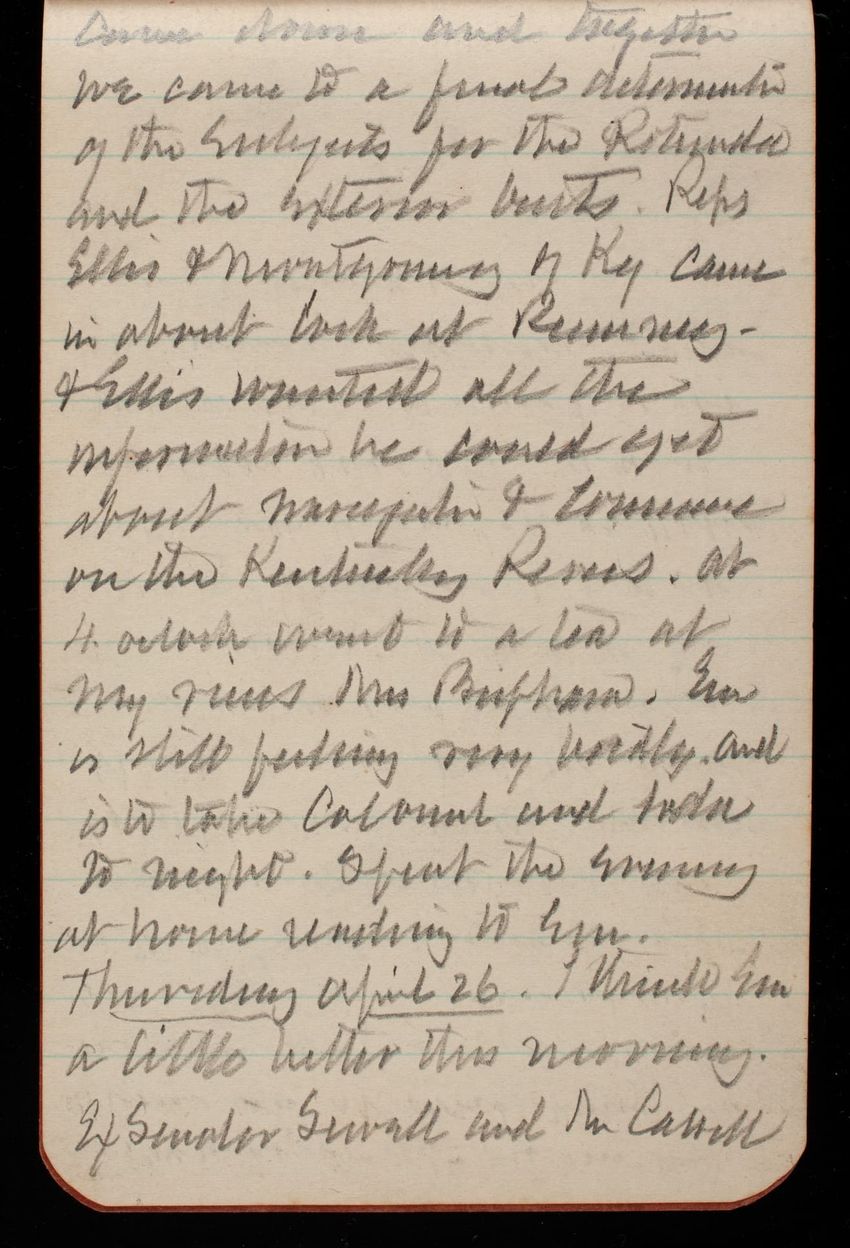 came down and together
we came to a final determinatn
of the Subjects for the Rotunda
and the exterior busts. Reps
Ellis & Montgomery of Ky came
in about lock at Rumsey-
& Ellis wanted all the
information he could get
about navigatn & Commerce
on the Kentucky Rivers. at
4 oclock went to a tea at
my niece Mrs Bingham. Em
is still feeling very badly. and
is to take Calomel and soda
to night. Spent the evening
at home reading to Em.
Thursday April 26. I think Em
a little better this morning.
Ex Senator Sewall and Mr